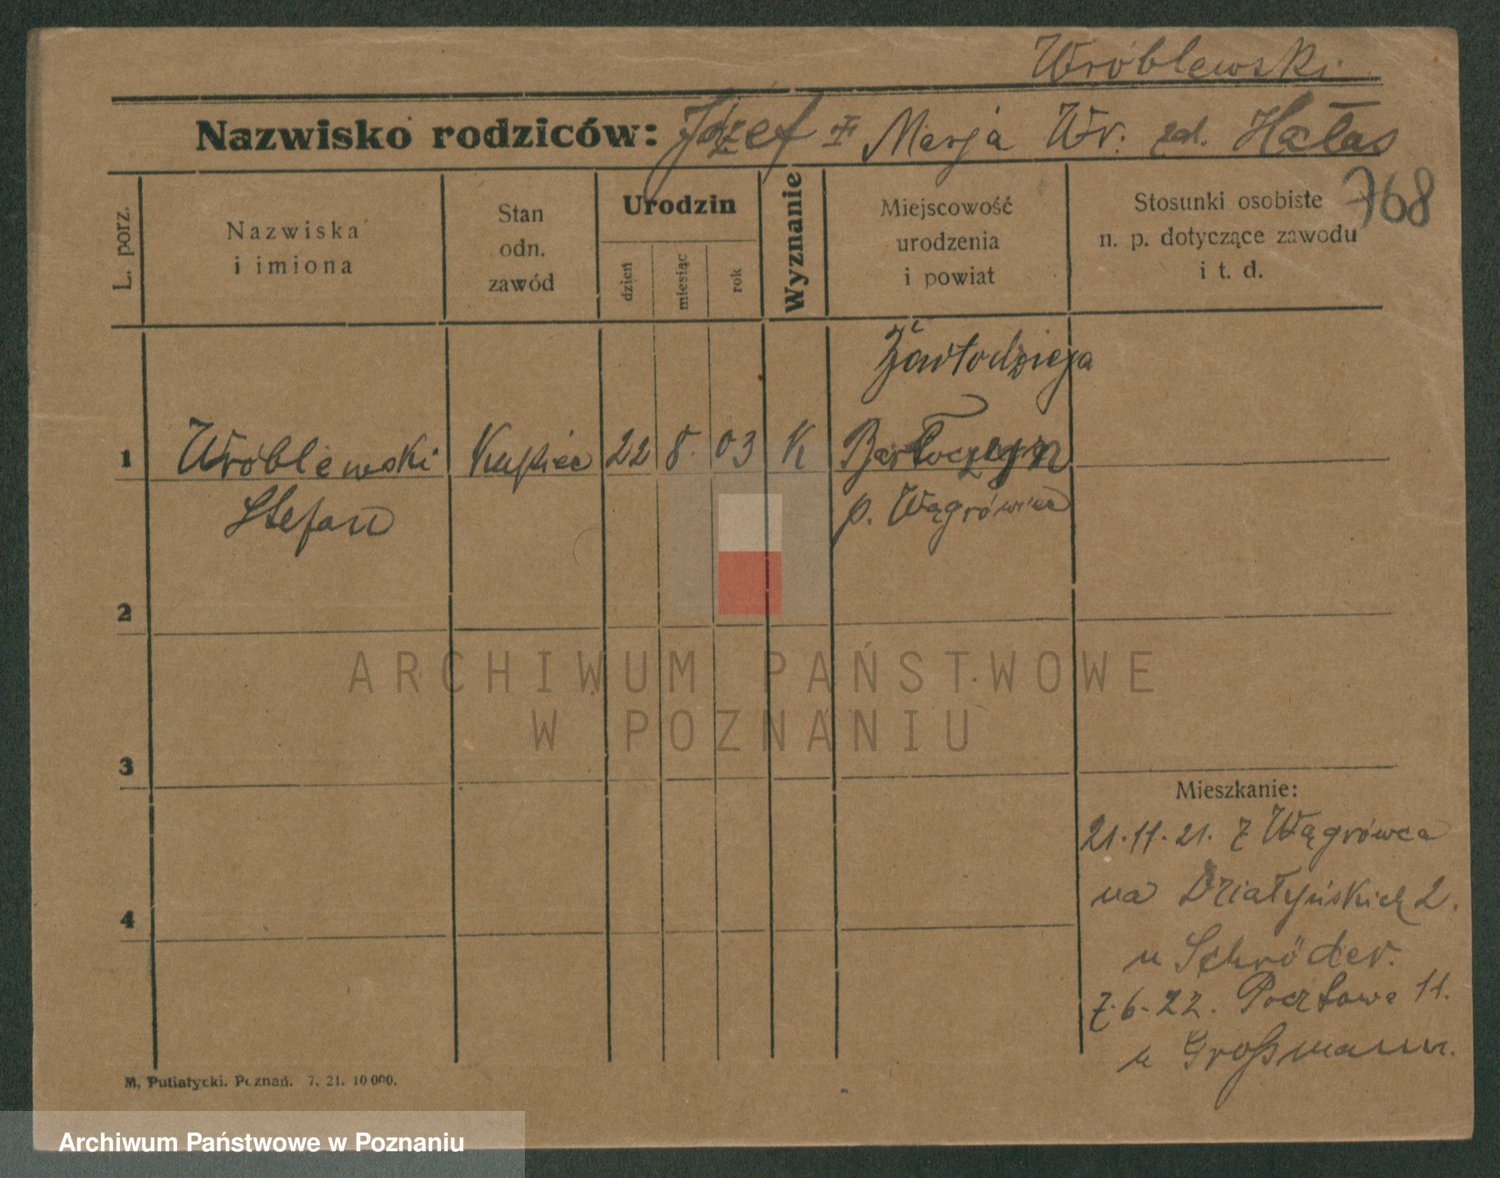 Wróblewski
Nazwisko rodziców: Józef i Marja Wr. zd. Hałas
768
L. porz.
Nazwiska
i imiona
Stan
odn.
zawód
Urodzin
dzień
miesiąc
rok
Wyznanie
Miejscowość
urodzenia
i powiat
Stosunki osobiste
n. p. dotyczące zawodu
i t. d.
1
Wróblewski
Stefan
Kupiec
22
8.
03
K
p. Wągrówiec
2
3
4
ARCHIWUM PAŃSTWOWE
W POZNANIU
Mieszkanie:
21.11.21. z Wągrówca
na Działyńskich 2.
u Schröder.
7.6.22. Pocztowa 11.
u Großmann.
M. Putiatycki. Poznań. 7. 21. 10 000.
Archiwum Państwowe w Poznaniu